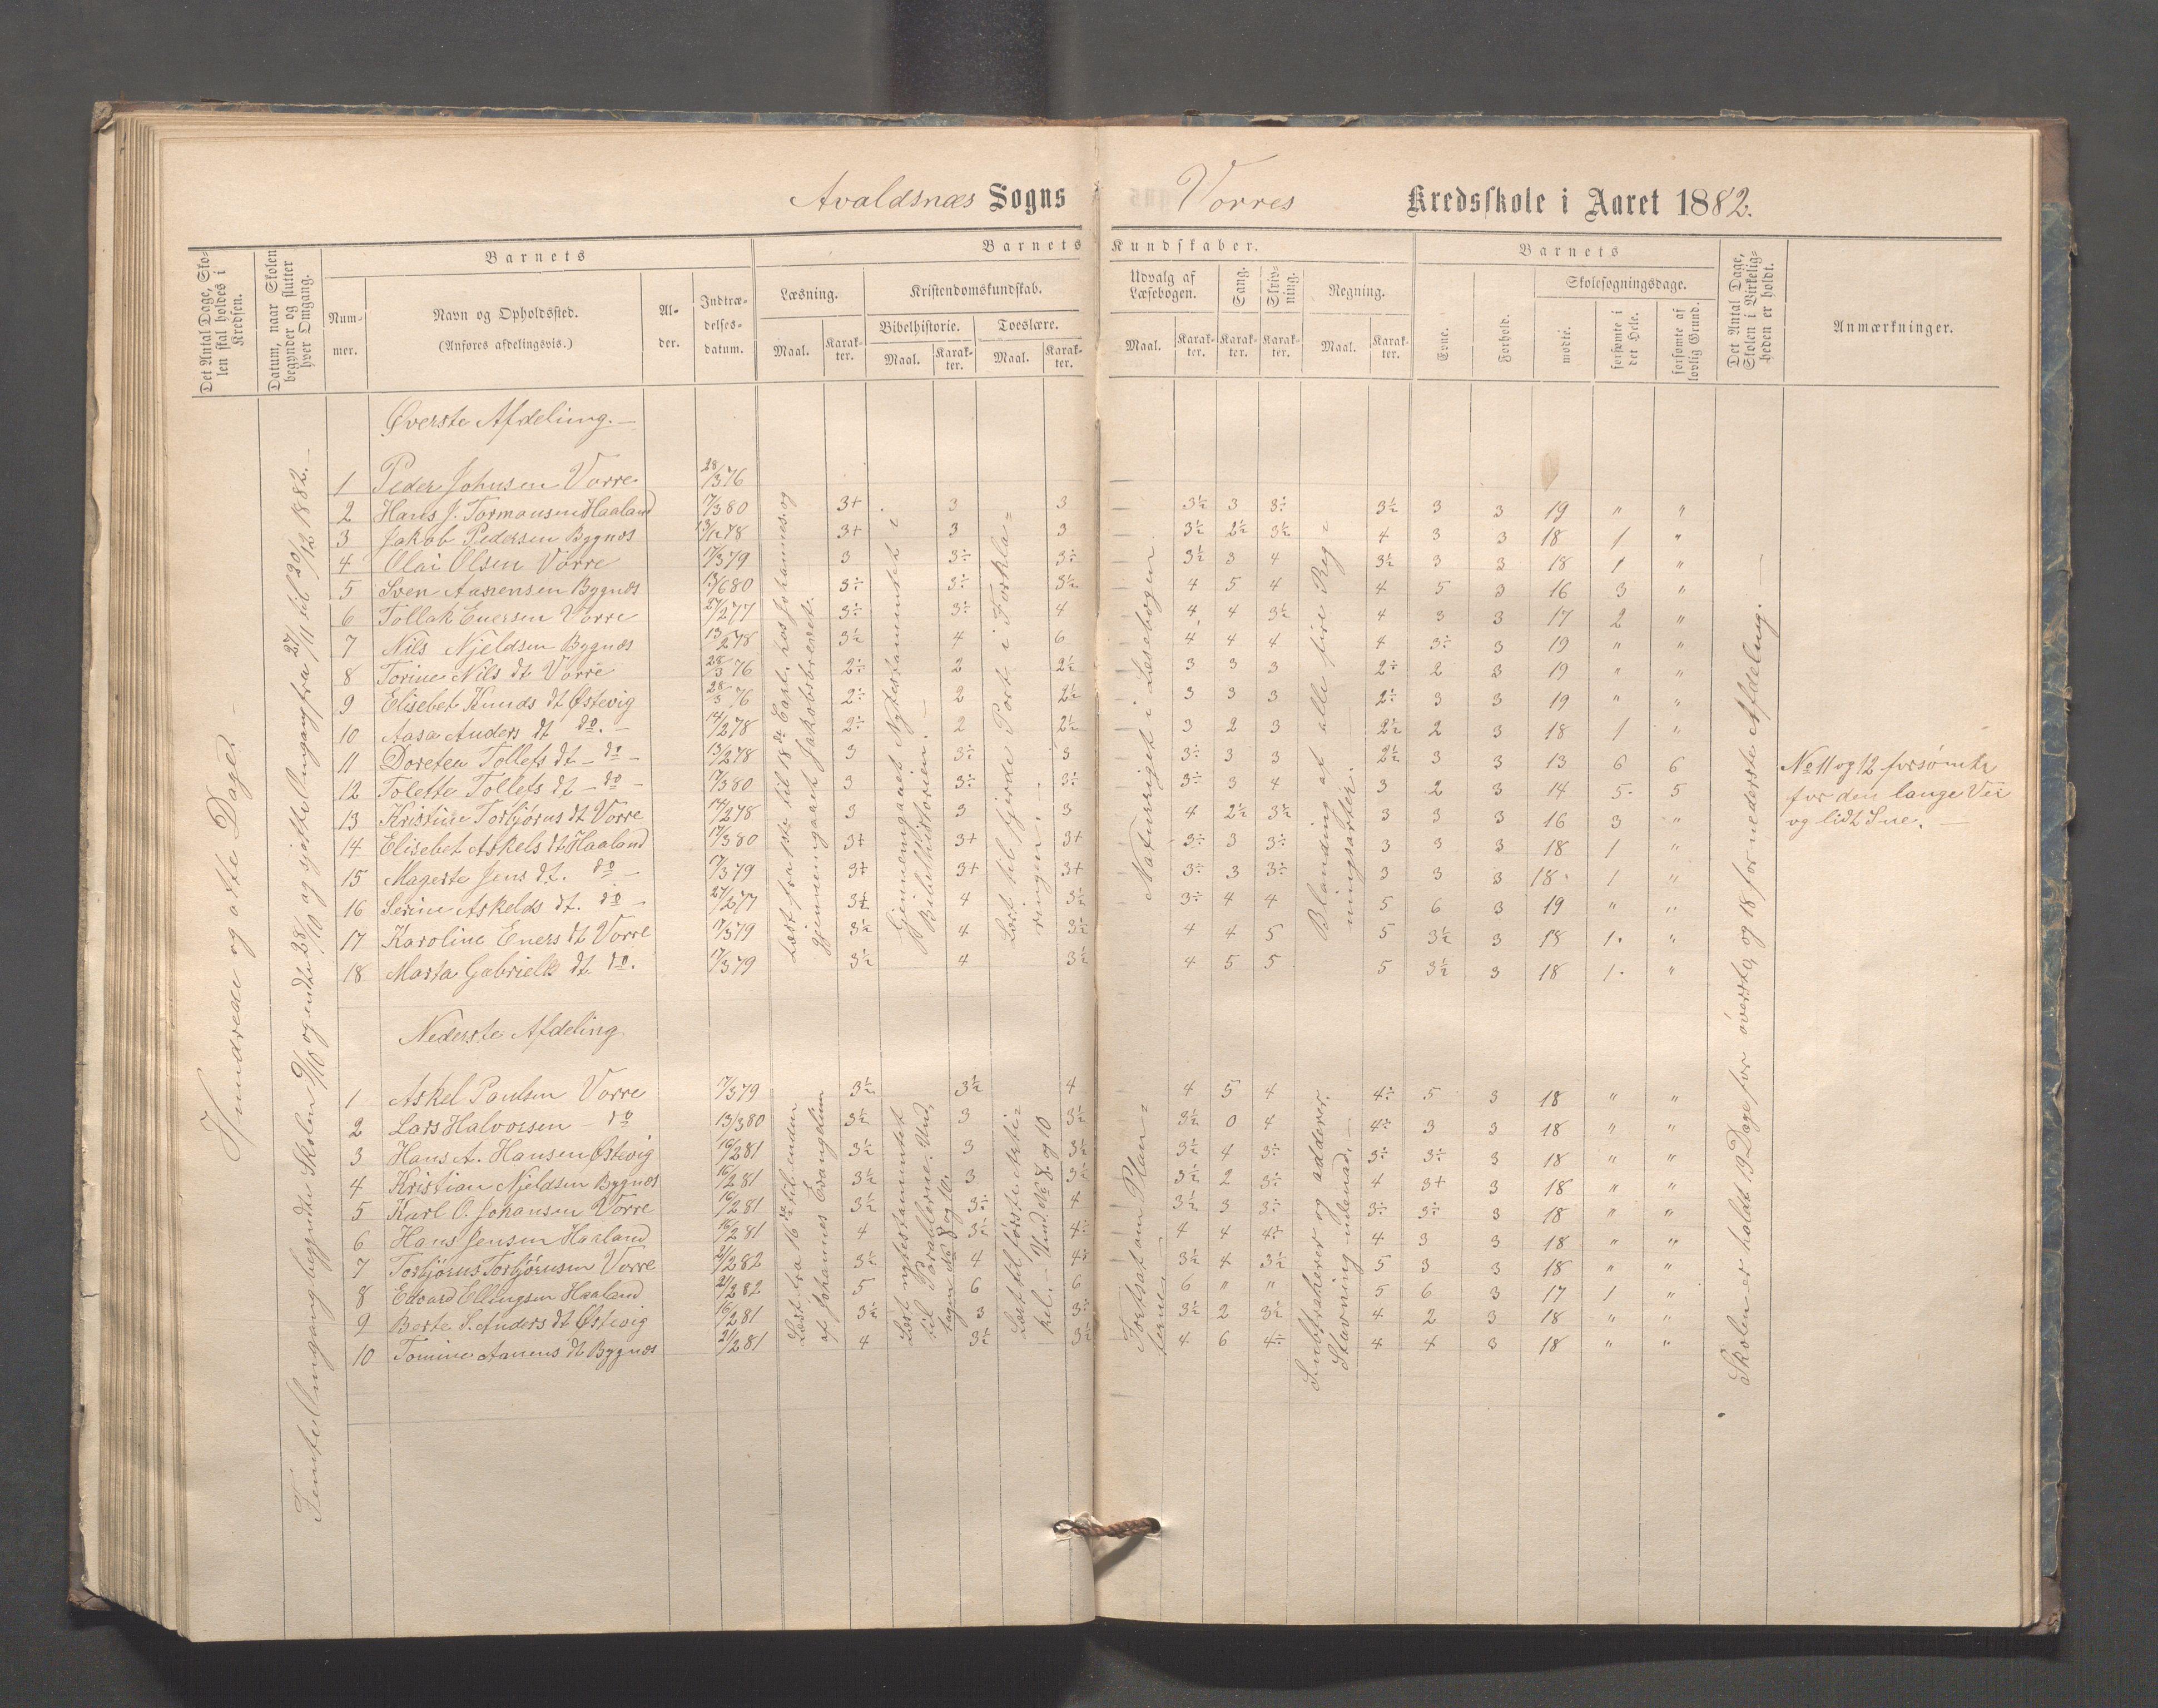 Avaldsnæs Sogns Vorres Kredsskole i Aaret 1882.
Det Antal Dage, Skolen skal holdes i Kredsen.
Datum, naar Skolen begynder og slutter hver Omgang.
Barnets
Barnets Kundskaber.
Barnets
Det Antal Dage, Skolen i Virkeligheden er holdt.
Anmærkninger.
Nummer.
Navn og Opholdssted.
(Anføres afdelingsvis.)
Alder.
Indtrædelsesdatum.
Læsning.
Kristendomskundskab.
Bibelhistorie.
Troeslære.
Udvalg af Læsebogen.
Sang.
Skrivning.
Regning.
Evne.
Forhold.
Skolesøgningsdage.
mødte.
forsømte i det Hele.
forsømte af lovlig Grund.
Maal. Karakter. Maal. Karakter. Maal. Karakter. Maal. Karakter. Karakter. Karakter. Maal. Karakter.
Hundrede og otte Dage. —
Øverste Afdeling. —
1 Peder Johnsen Vorre 28/3 76
2 Hans J. Tormousen Haaland 17/3 80 3+ 3 3 3½ 3 3÷ 3½ 3 3 19 " "
3 Jakob Pedersen Bygnæs 13/12 78 3+ 3 3 3½ 2½ 3½ 4 3 3 18 1 "
4 Olai Olsen Vorre 17/3 79 3 3÷ 3÷ 3½ 3 4 3½ 3 3 18 1 "
5 Sven Aanensen Bygnæs 13/6 80 3÷ 3÷ 3½ 4 5 4 4 5 3 16 3 "
6 Tollak Enersen Vorre 27/2 77 3÷ 3÷ 4 4 4 3½ 4 3 3 17 2 "
7 Nils Njeldsen Bygnæs 13/2 78 3½ 4 6 4 4 4 4 3÷ 3 19 " "
8 Torine Nils dt Vorre 28/3 76 2÷ 2 2½ 3 3 3 2÷ 2 3 19 " "
9 Elisebet Knuds dt Østevig 28/3 76 2÷ 2 2½ 3 3 3 2÷ 3 3 19 " "
10 Aasa Anders dt do. — 14/2 78 2÷ 2 2½ 3 2 3 2½ 2 3 18 1 "
11 Doretea Tollefs dt — do — 13/2 78 3 3÷ 3 3÷ 3 3 2½ 3 3 13 6 6
12 Tolette Tollefs dt — do — 17/3 80 3 3÷ 3÷ 3÷ 3 4 3 2 3 14 5. 5
13 Kristine Torbjørns dt Vorre 14/2 78 3 3 3 4 2½ 3½ 3 3 3 16 3 "
14 Elisebet Askels dt Haaland 17/3 80 3+ 3+ 3+ 3÷ 3 3÷ 3 3 3 18 1 "
15 Magerte Jens dt. do — 17/3 79 3+ 3+ 3+ 3÷ 3 3÷ 3 3 3 18. 1 "
16 Serine Askelds dt. do — 27/2 77 3½ 4 3½ 3÷ 4 4 5 6 3 19 " "
17 Karoline Eners dt Vorre 17/3 79 3½ 4 3½ 4 4 5 5 3½ 3 18 1. "
18 Marta Gabriels dt do. 17/3 79 3½ 4 3½ 4 5 5 5 3½ 3 18 1. "
Læst fra 1ste til 18de Cast. hos Johannes og
gjennemgaaet Jakobsbrevet.
Gjennemgaaet Nytestamentet i
Bibelhistorien. —
Læst til fjerde Part i Forkla=
ringen. —
Naturriget i Læsebogen
Blanding af alle fire Reg=
ningsarter.
No 11 og 12 forsømte
for den lange Vei
og lidt Sne. —
Nederste Afdeling.
1 Askel Poulsen Vorre 17/3 79 3½ 3½ 4 4 5 4 4÷ 5 3 18 " "
2 Lars Halvorsen — do 13/3 80 3½ 3 3½ 3½ 0 4 4÷ 3 3 18 " "
3 Hans A. Hansen Østevig 16/2 81 3½ 3 3½ 3½ 4 3÷ 3÷ 3÷ 3 18 " "
4 Kristian Njeldsen Bygnæs 16/2 81 3½ 3 3½ 3½ 2 3÷ 4 3+ 3 18 " "
5 Karl O. Johansen Vorre 16/2 81 3½ 3÷ 4 3½ 3 3÷ 3÷ 3÷ 3 18 " "
6 Hans Jensen Haaland 16/2 81 4 3½ 4÷ 4 4 4÷ 4 3 3 18 " "
7 Torbjørns Torbjørnsen Vorre 21/2 82 3½ 4 4÷ 3½ 4 3½ 5 3 3 18 " "
8 Edvard Ellingsen Haaland 21/2 82 5 6 6 6 " " 5 6 3 17 1 "
9 Berte S. Anders dt Østevig 16/2 81 3½ 3 3÷ 3½ 2 3½ 4 2 3 18 " "
10 Tomine Aanens dt Bygnæs 21/2 81 4 3½ 3½ 4 6 4÷ 4 4 3 18 " "
Læst fra 16de til enden
af Johannes Evangelium
Læst nytestamentet
til Parablerne. Und,
tagen No 8 og 10.
Læst til første Arti=
kel. — Und. No 8. og 10
Fortsat om Plan=
terne
Subtraherer og adderer.
Stavning udenad. —
Skolen er holdt 19 Dage for øverste, og 18 for nederste Afdeling. —